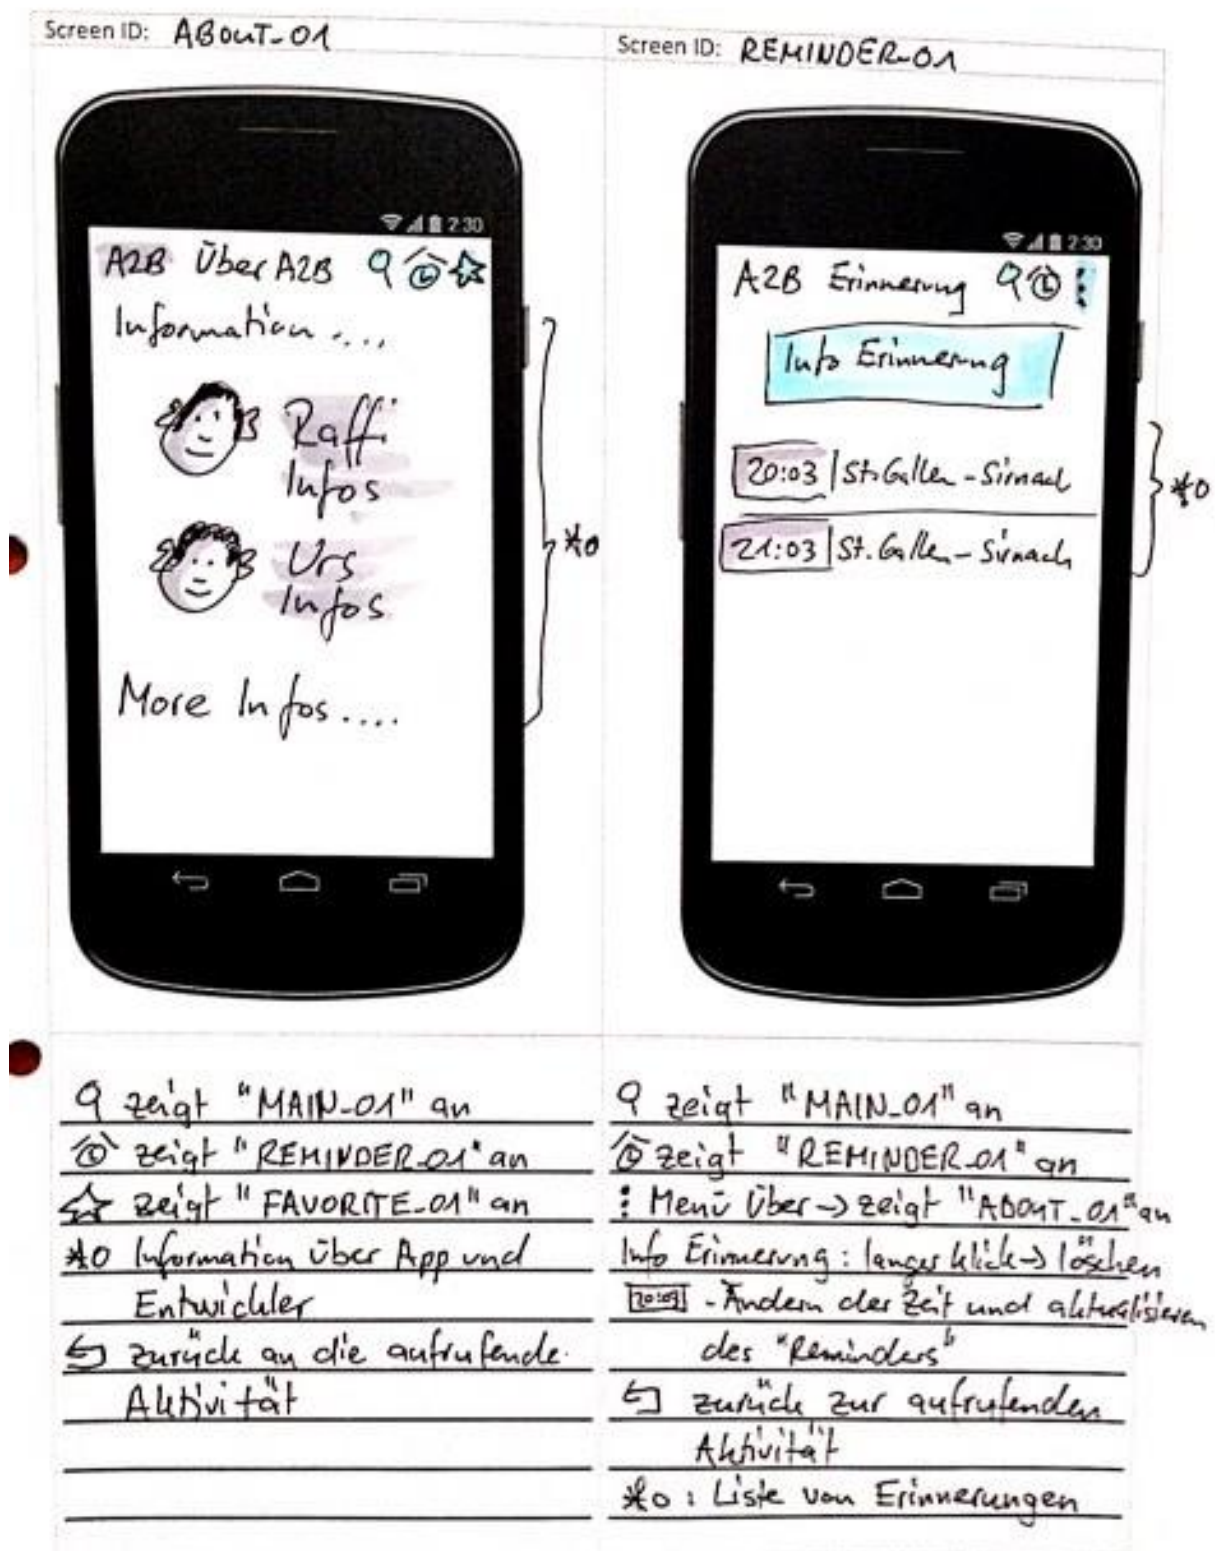 Screen ID: ABOUT-01
2:30
A2B Über A2B
Information ....
Raffi
Infos
Urs
Infos
*0
More Infos....
zeigt "MAIN-01" an
zeigt "REMINDER-01" an
zeigt "FAVORITE-01" an
*0 Information über App und
Entwickler
zurück an die aufrufende.
Aktivität
Screen ID: REMINDER-01
2:30
A2B Erinnerung
Info Erinnerung
20:03 | St. Gallen - Sirnach
*0
21:03 | St. Gallen - Sirnach
zeigt "MAIN_01" an
zeigt "REMINDER_01" an
: Menü Über -> zeigt "ABOUT_01" an
Info Erinnerung: langer klick -> löschen
20:03 - Ändern der Zeit und aktualisieren
des "Reminders"
zurück zur aufrufenden
Aktivität
*0: Liste von Erinnerungen